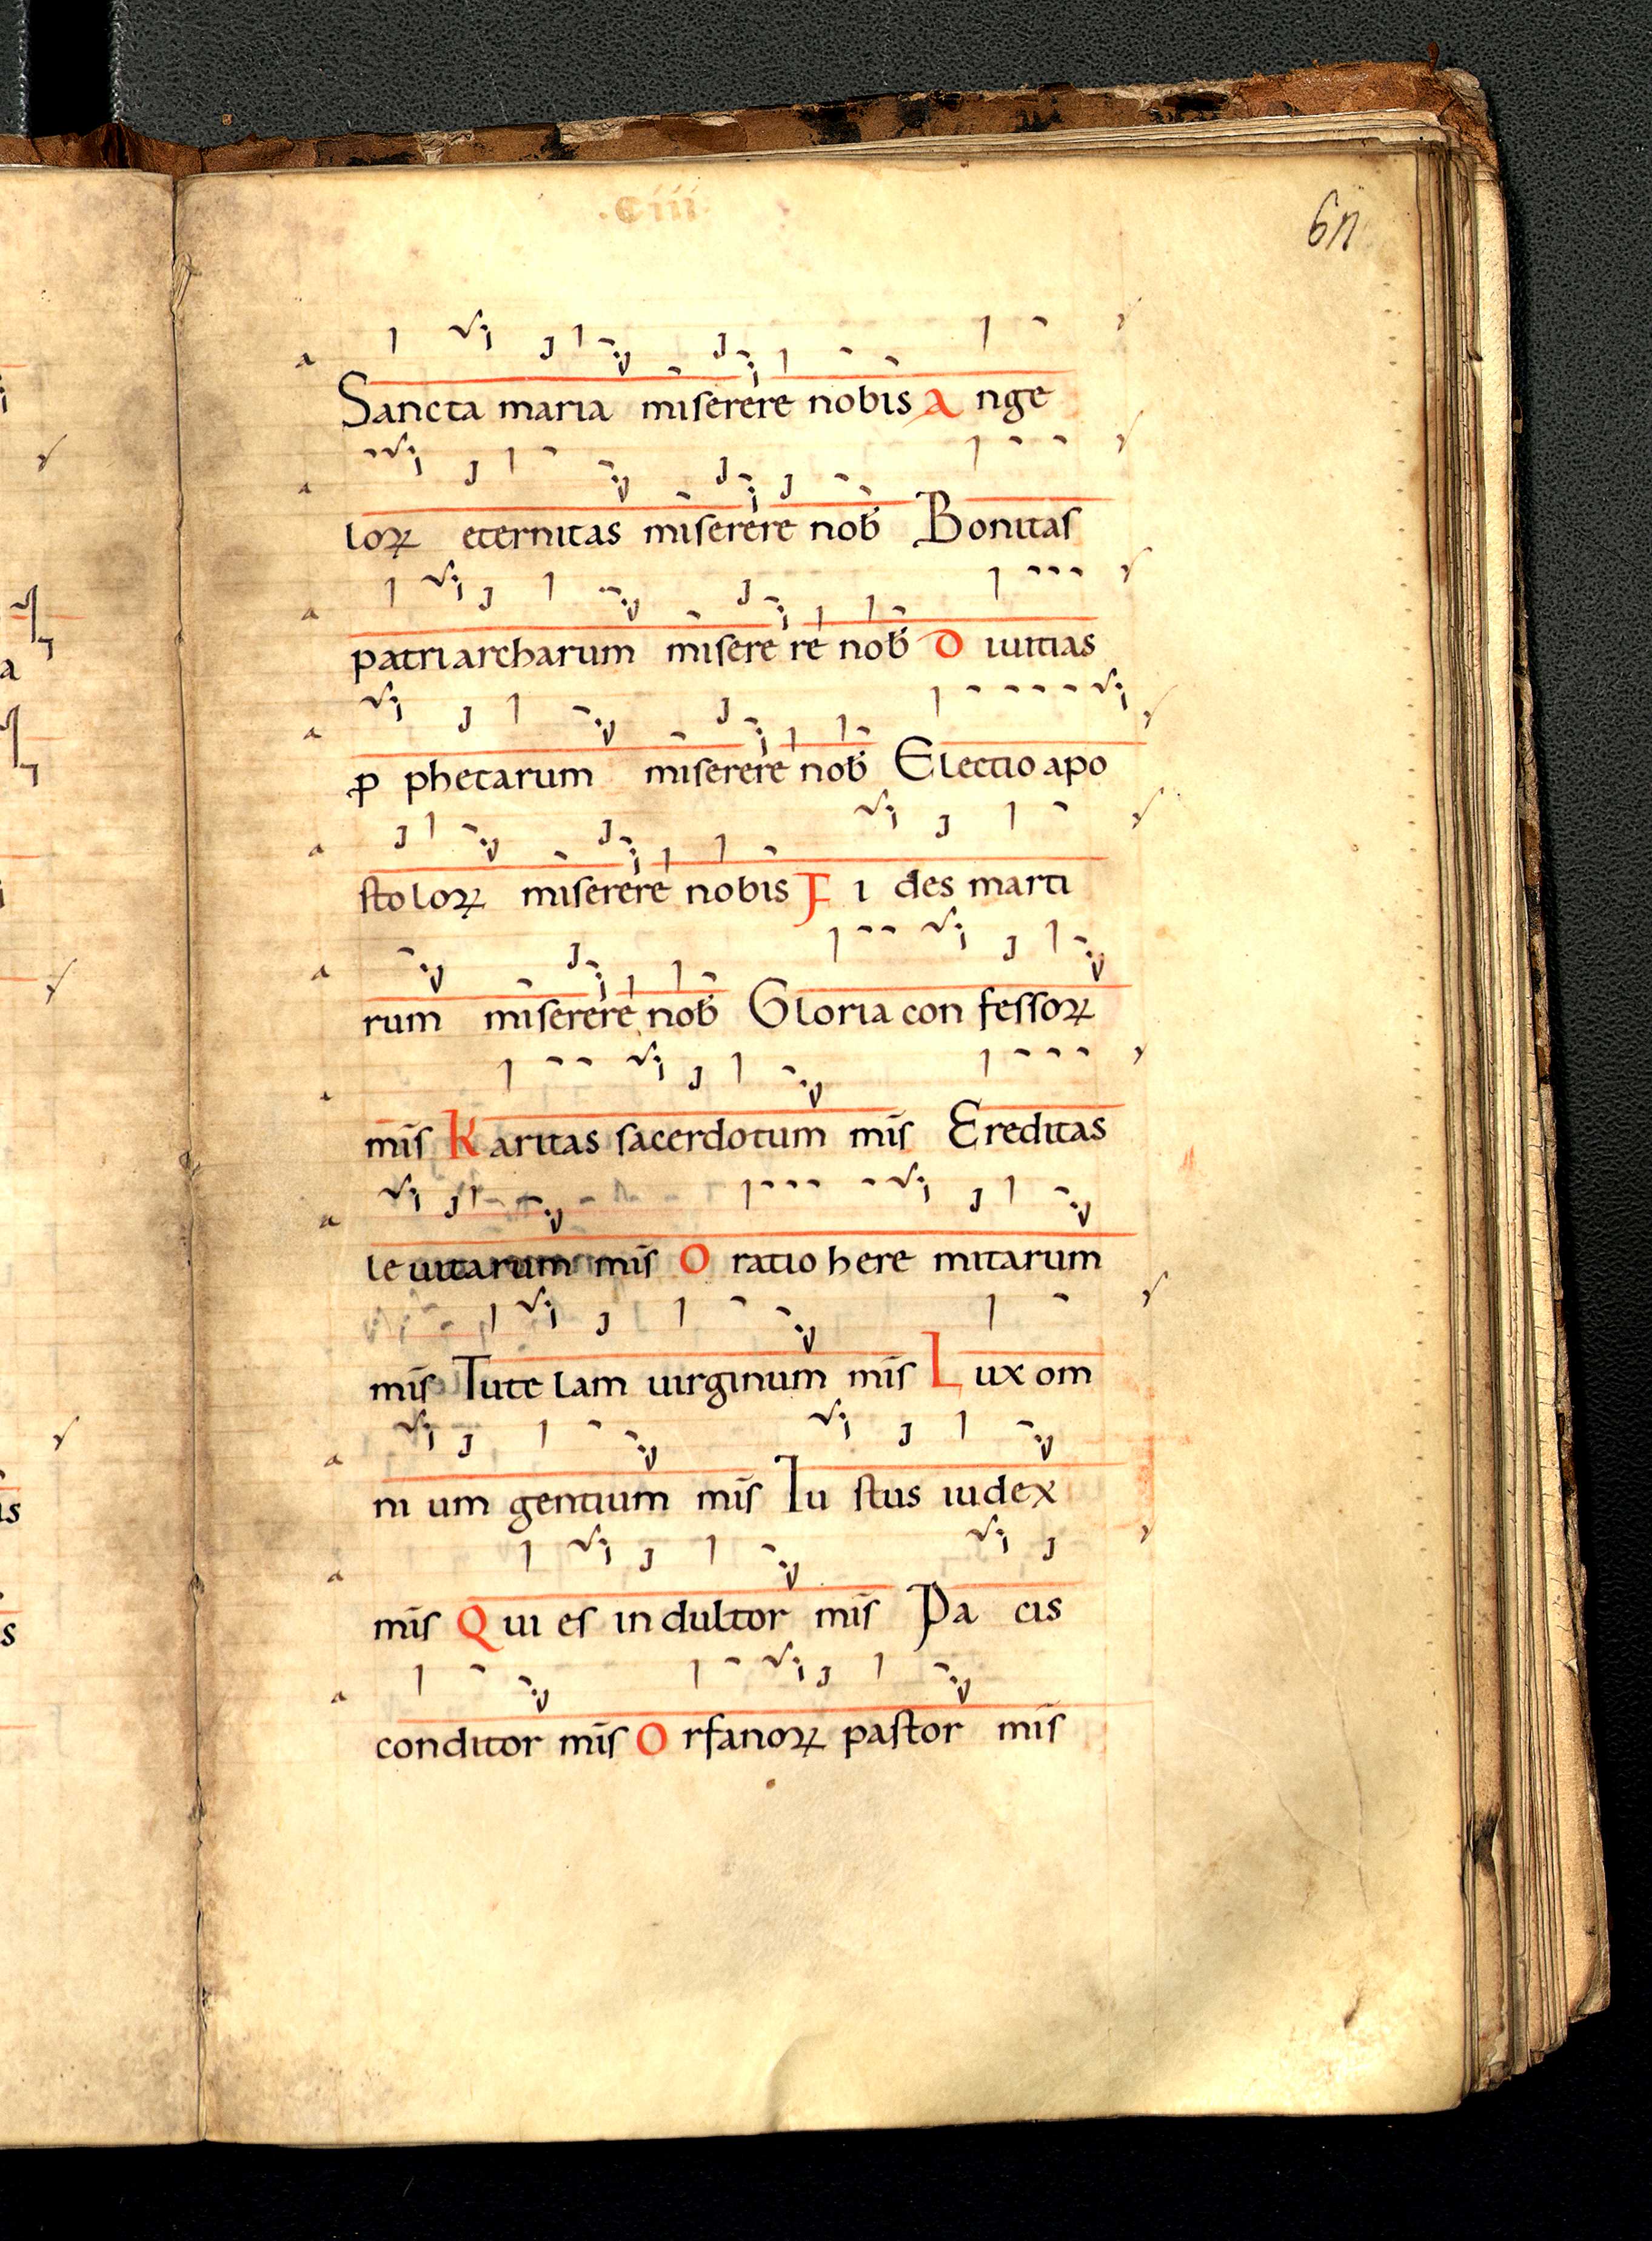 .ciii.
67
Sancta maria miserere nobis A nge
loꝝ eternitas miserere nob̄ Bonitas
patriarcharum miserere nob̄ D iuitias
ꝓ phetarum miserere nob̄ Electio apo
stoloꝝ miserere nobis F i des marti
rum miserere nob̄ Gloria con fessoꝝ
mis̄ K aritas sacerdotum mis̄ Ereditas
leuitarum mis̄ O ratio here mitarum
mis̄ Tute lam uirginum mis̄ L ux om
ni um gentium mis̄ Iu stus iudex
mis̄ Q ui es indultor mis̄ Pa cis
conditor mis̄ O rfanoꝝ pastor mis̄